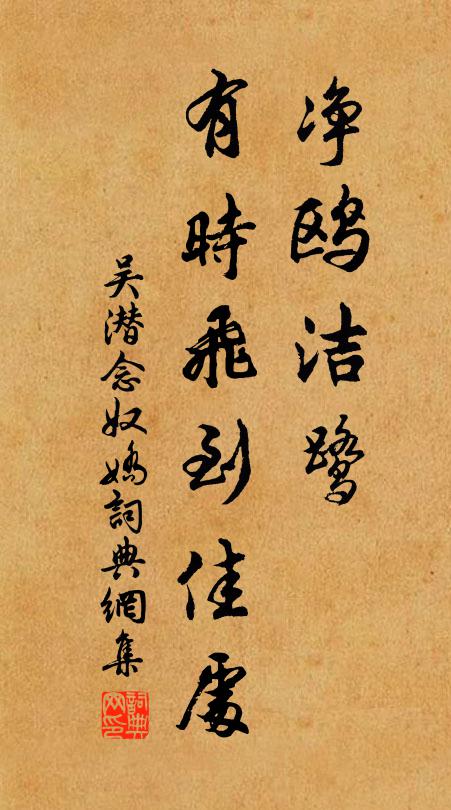 净鸥洁鹭
有時飛到佳處
吴潜念奴嬌詞典網集
詞典網印